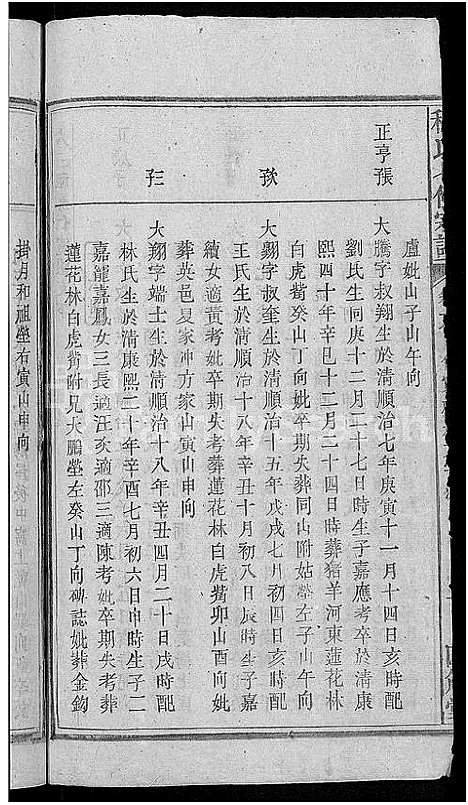 正亨張
盧妣山子山午向
大騰字叔翔生於清順治七年庚寅十一月十四日亥時配
劉氏生同庚十二月二十七日時生子嘉應考卒於清康
熙四十年辛巳十二月二十四日時葬猪羊河東蓮花林
白虎觜癸山丁向妣卒期失葬同山附姑塋左子山午向
大翾字叔奎生於清順治十五年戊戌七月初四日亥時配
王氏生於清順治十八年辛丑十月初八日辰時生子嘉
續女適黃考妣卒期失考葬蓮花林白虎觜卯山酉向妣
葬英邑夏家冲方家山寅山申向
大翔字端士生於清順治十八年辛丑四月二十日戌時配
林氏生於清康熙二十年辛酉七月初六日申時生子二
嘉龍嘉鳳女三長適汪次適邵三適陳考妣卒期失考葬
蓮花林白虎觜附兄大鵬塋左癸山丁向碑誌妣葬金鈎
掛月和祖塋右寅山申向